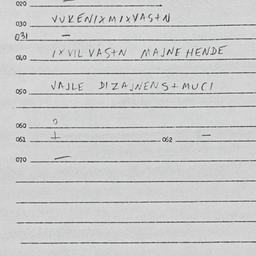 020
030 VURENIXMIXVASTN
031 —
040 IXVIL VASTN MAJNE HENDE
050 VAJLE DIZAJNENSTMUCI
060 ?
061 + 062 —
070 —